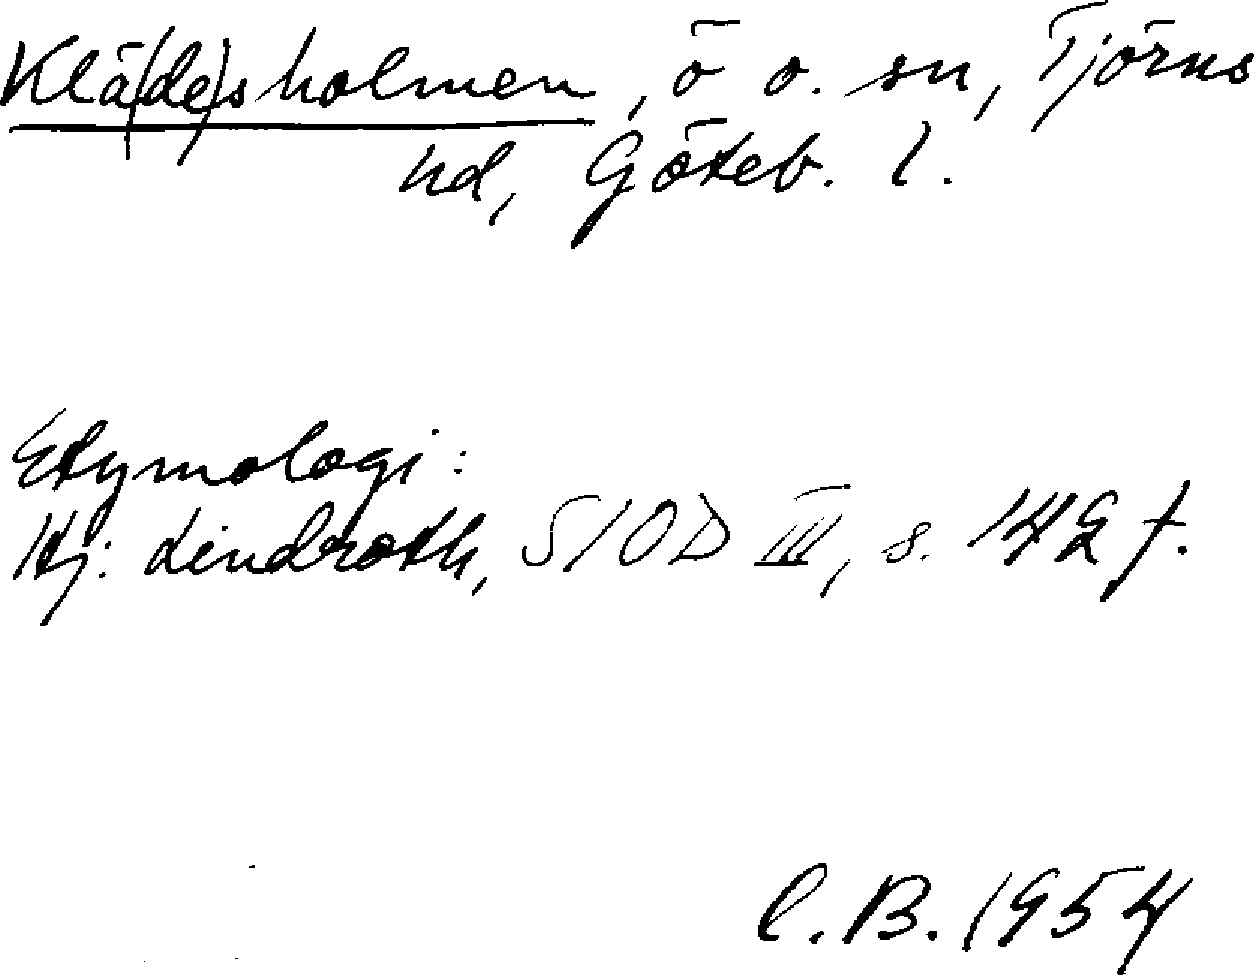 Klä(de)sholmen, ö o. sn, Tjörns
hd, Göteb. l.
Etymologi:
Hj. Lindroth, SIOD III, s. 142 f.
C.B. 1954